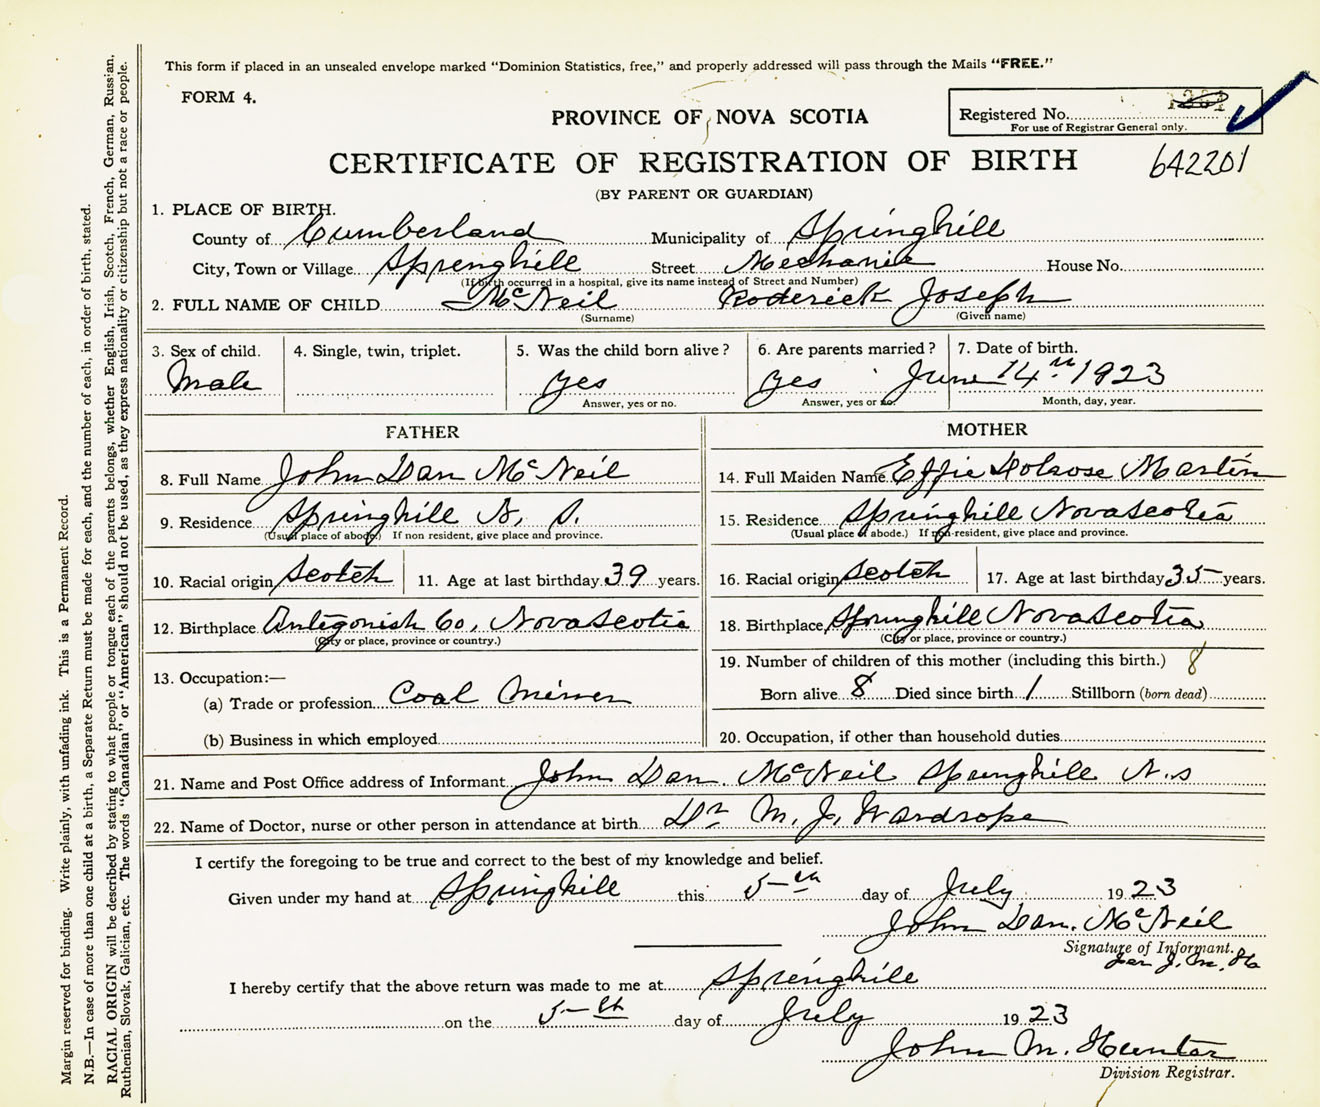 This form if placed in an unsealed envelope marked "Dominion Statistics, free," and properly addressed will pass through the Mails "FREE."
FORM 4.
PROVINCE OF NOVA SCOTIA
Registered No.
For use of Registrar General only.
CERTIFICATE OF REGISTRATION OF BIRTH
642201
(BY PARENT OR GUARDIAN)
1. PLACE OF BIRTH.
County of Cumberland Municipality of Springhill
City, Town or Village Springhill Street Mechanic House No.
(If birth occurred in a hospital, give its name instead of Street and Number)
2. FULL NAME OF CHILD McNeil Roderick Joseph
(Surname) (Given name)
3. Sex of child. 4. Single, twin, triplet. 5. Was the child born alive? 6. Are parents married? 7. Date of birth.
Male yes yes June 14th 1923
Answer, yes or no. Answer, yes or no. Month, day, year.
FATHER MOTHER
8. Full Name John Dan McNeil 14. Full Maiden Name Effie Martin
9. Residence Springhill N. S. 15. Residence Springhill Nova Scotia
(Usual place of abode.) If non resident, give place and province. (Usual place of abode.) If non-resident, give place and province.
10. Racial origin Scotch 11. Age at last birthday 39 years. 16. Racial origin Scotch 17. Age at last birthday 35 years.
12. Birthplace Antigonish Co, Nova Scotia 18. Birthplace Springhill Nova Scotia
(City or place, province or country.) (City or place, province or country.)
13. Occupation:— 19. Number of children of this mother (including this birth.) 8
(a) Trade or profession Coal Miner Born alive 8 Died since birth 1 Stillborn (born dead)
(b) Business in which employed 20. Occupation, if other than household duties
21. Name and Post Office address of Informant John Dan. McNeil Springhill N.S
22. Name of Doctor, nurse or other person in attendance at birth Dr M. J. Wardrope
I certify the foregoing to be true and correct to the best of my knowledge and belief.
Given under my hand at Springhill this 5th day of July 1923
John Dan. McNeil
Signature of Informant.
I hereby certify that the above return was made to me at Springhill
on the 5th day of July 1923
John M. Hunter
Division Registrar.
Margin reserved for binding. Write plainly, with unfading ink. This is a Permanent Record.
N.B.—In case of more than one child at a birth, a Separate Return must be made for each, and the number of each, in order of birth, stated.
RACIAL ORIGIN will be described by stating to what people or tongue each of the parents belongs, whether English, Irish, Scotch, French, German, Russian,
Ruthenian, Slovak, Galician, etc. The words "Canadian" or "American" should not be used, as they express nationality or citizenship but not a race or people.